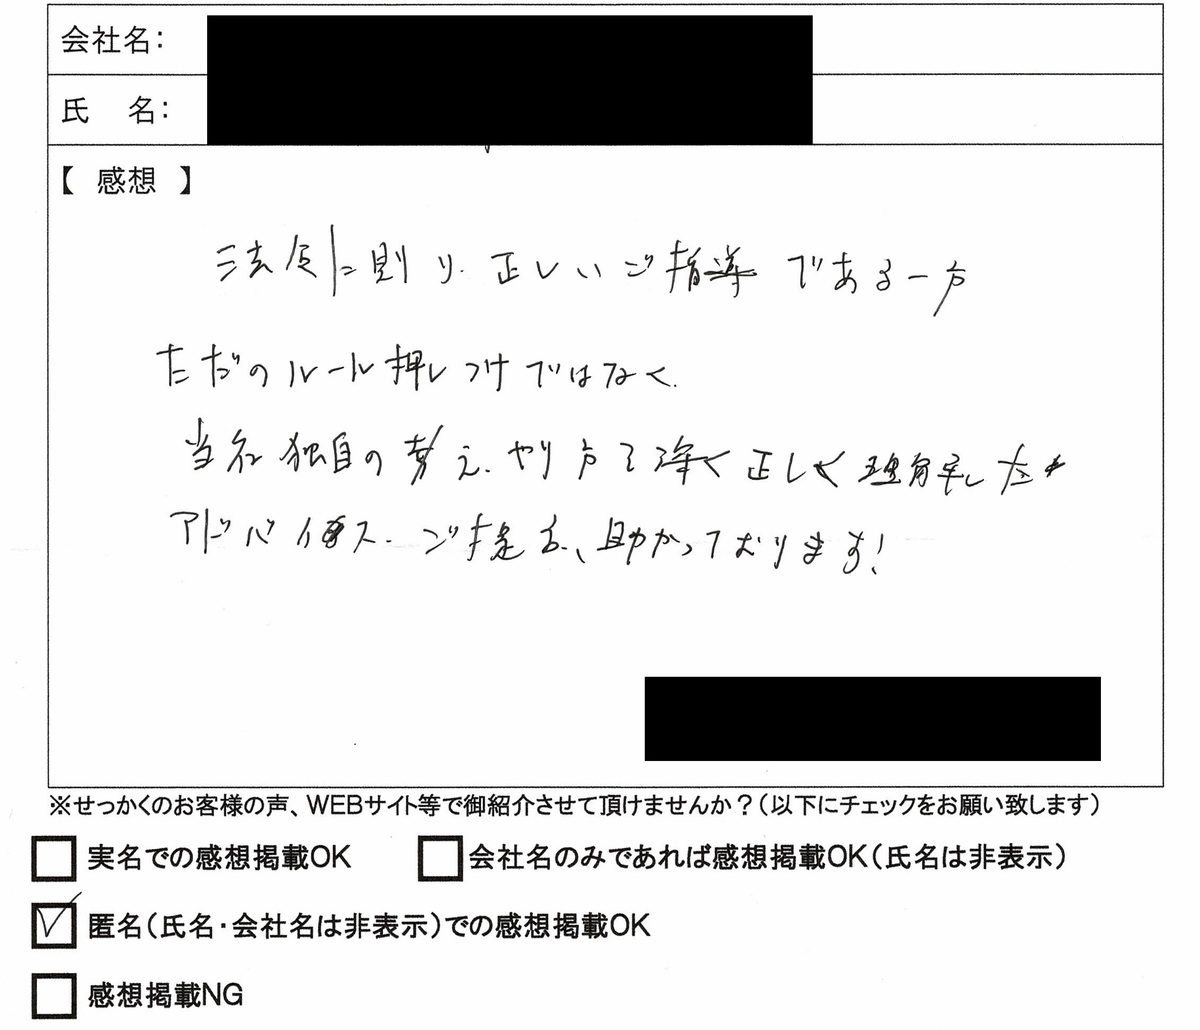 会社名:
氏 名:
【 感想 】
法令に則り、正しいご指導である一方
ただのルール押しつけではなく、
当社独自の考え、やり方を深く正しく理解した
アドバイス、ご提示、助かっております!
※せっかくのお客様の声、WEBサイト等で御紹介させて頂けませんか?(以下にチェックをお願い致します)
実名での感想掲載OK 会社名のみであれば感想掲載OK(氏名は非表示)
匿名(氏名・会社名は非表示)での感想掲載OK
感想掲載NG